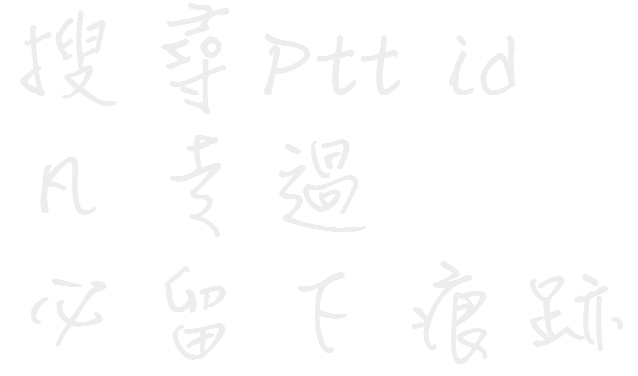 搜尋Ptt id
凡走過
必留下痕跡